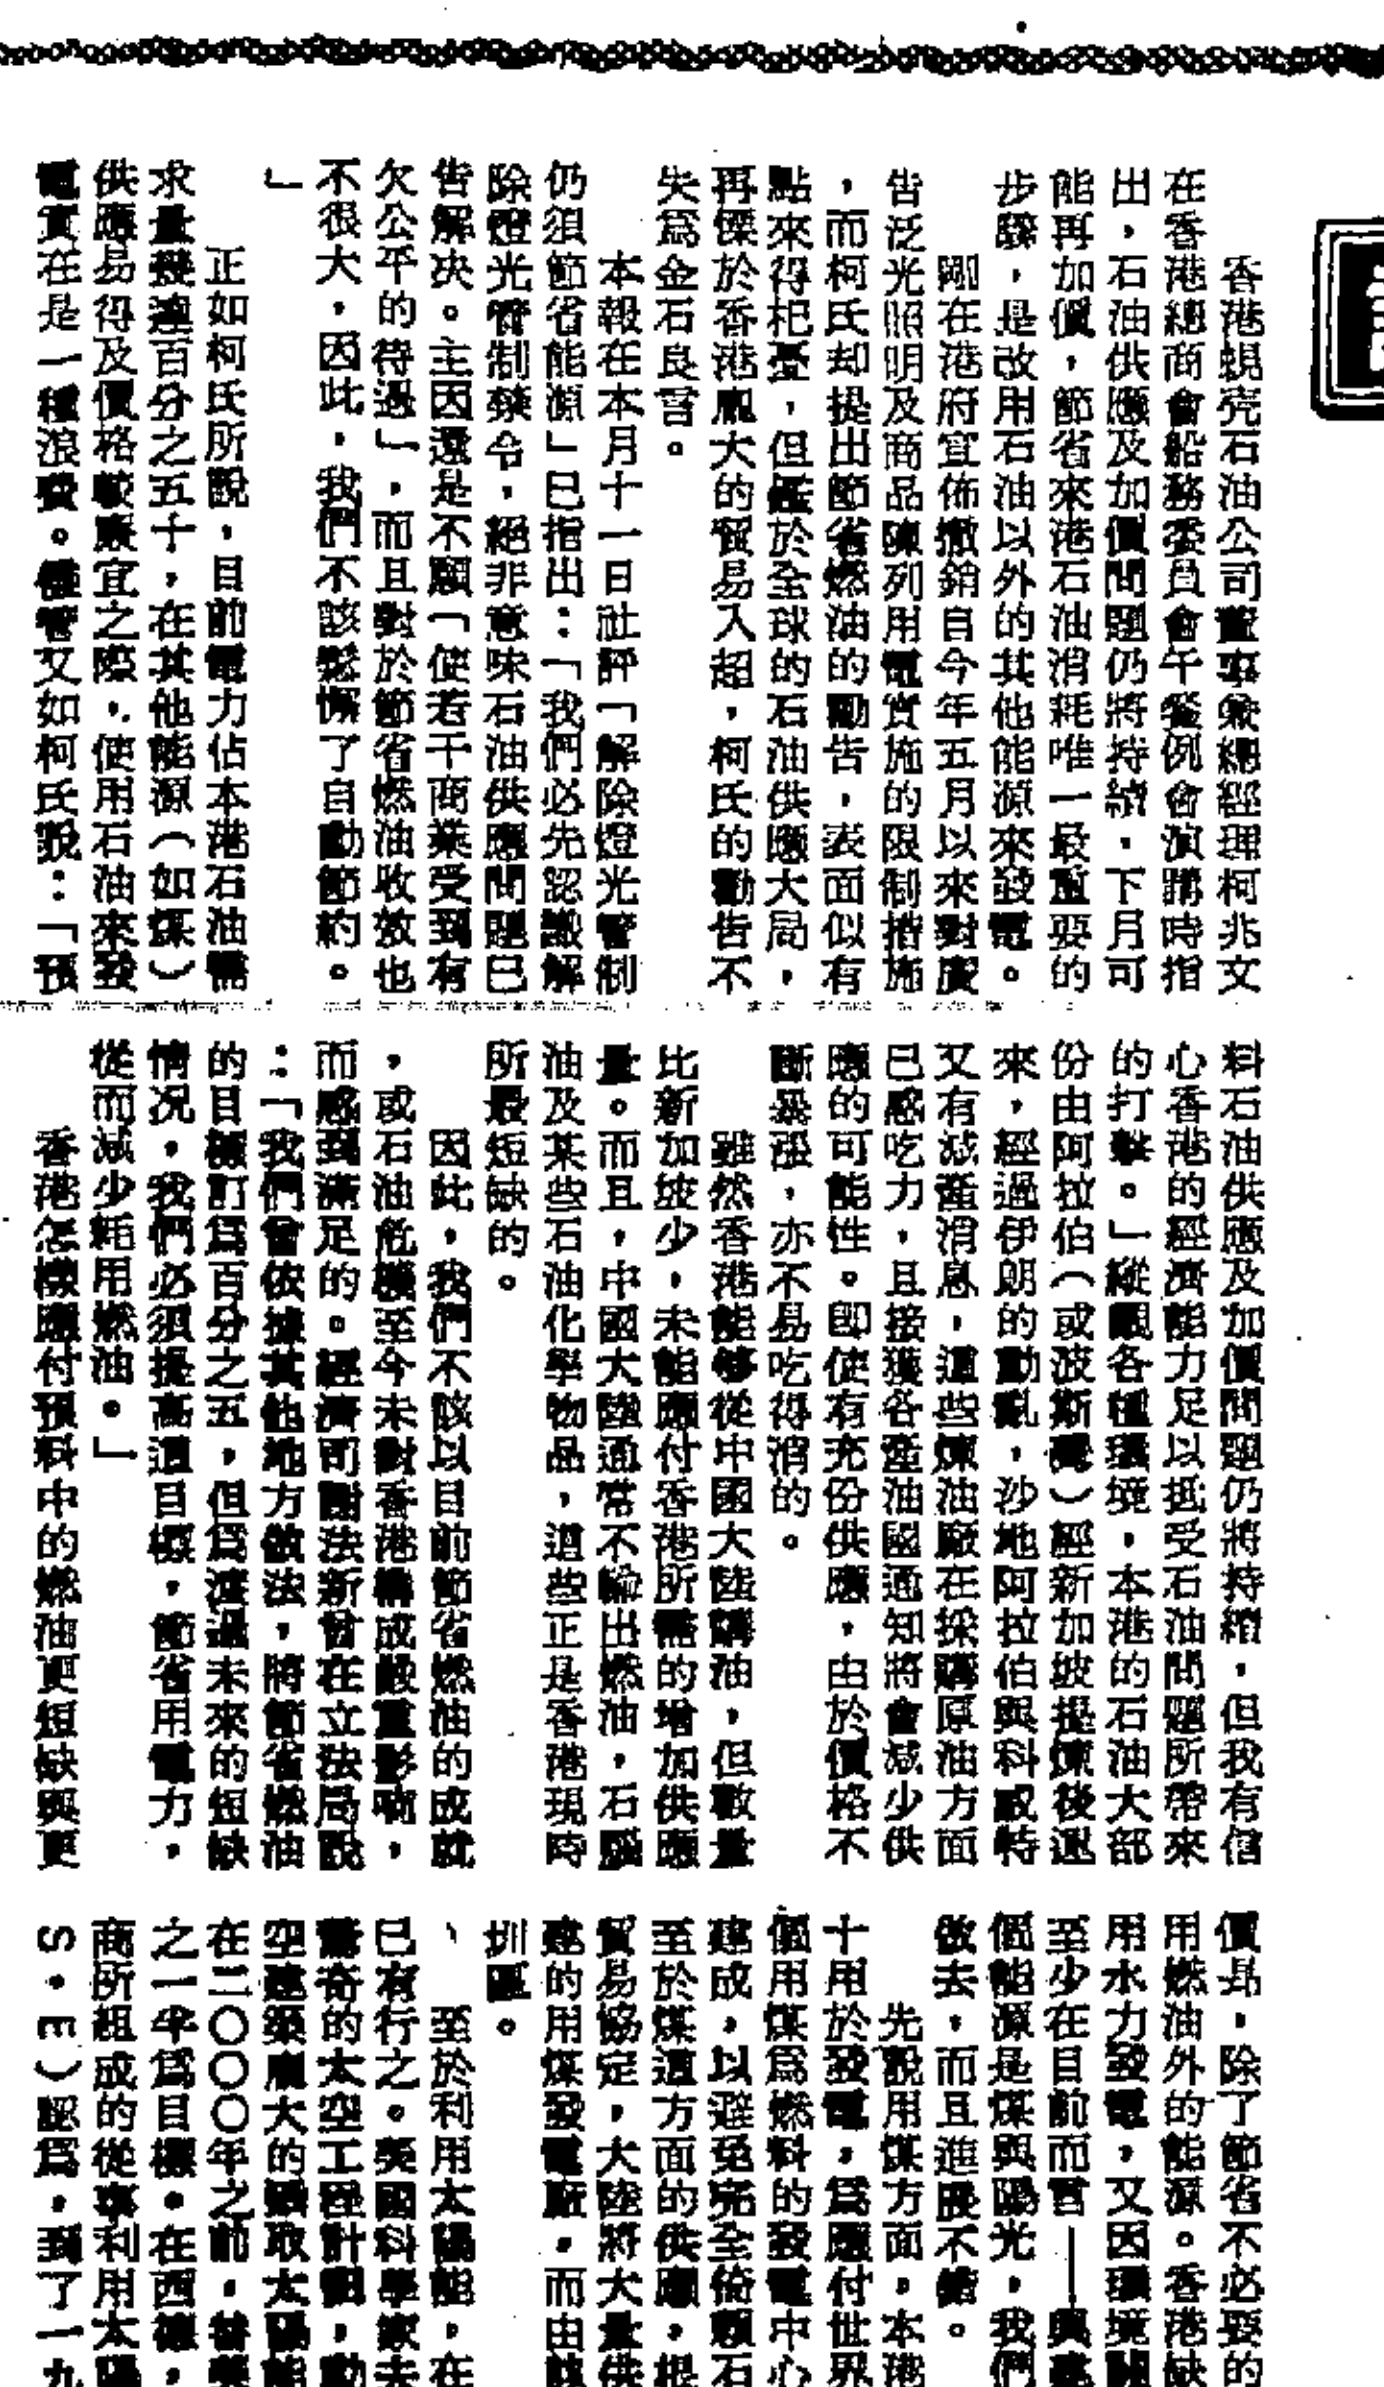 香港蜆壳石油公司董事兼總經理柯兆文
在香港總商會船務委員會午餐例會演講時指
出，石油供應及加價問題仍將持續，下月可
能再加價，節省來港石油消耗唯一最重要的
步驟，是改用石油以外的其他能源來發電。
剛在港府宣佈撤銷自今年五月以來對廣
告泛光照明及商品陳列用電實施的限制措施
，而柯氏却提出節省燃油的勸告，表面似有
點來得杞憂，但鑑於全球的石油供應大局，
再懍於香港龐大的貿易入超，柯氏的勸告不
失爲金石良言。
本報在本月十一日社評「解除燈光管制
仍須節省能源」已指出：「我們必先認識解
除燈光管制禁令，絕非意味石油供應問題已
告解决。主因還是不願「使若干商業受到有
欠公平的待遇」，而且對於節省燃油收效也
不很大，因此，我們不該鬆懈了自動節約。
」
正如柯氏所說，目前電力佔本港石油需
求量幾達百分之五十，在其他能源（如煤）
供應易得及價格較廉宜之際，使用石油來發
電實在是一種浪費。儘管又如柯氏說：「預
料石油供應及加價問題仍將持續，但我有信
心香港的經濟能力足以抵受石油問題所帶來
的打擊。」縱觀各種環境，本港的石油大部
份由阿拉伯（或波斯灣）經新加坡提煉後運
來，經過伊朗的動亂，沙地阿拉伯與科威特
又有减產消息，這些煉油廠在採購原油方面
已感吃力，且接獲各產油國通知將會减少供
應的可能性。即使有充份供應，由於價格不
斷暴漲，亦不易吃得消的。
雖然香港能夠從中國大陸購油，但數量
比新加坡少，未能應付香港所需的增加供應
量。而且，中國大陸通常不輸出燃油，石腦
油及某些石油化學物品，這些正是香港現時
所最短缺的。
因此，我們不該以目前節省燃油的成就
，或石油危機至今未對香港構成嚴重影响，
而感到滿足的。經濟司謝法新曾在立法局說
：「我們曾依據其他地方做法，將節省燃油
的目標訂爲百分之五，但爲渡過未來的短缺
情况，我們必須提高這目標，節省用電力，
從而减少耗用燃油。」
香港怎樣應付預料中的燃油更短缺與更
價昂，除了節省不必要的
用燃油外的能源。香港缺
用水力發電，又因環境
至少在目前而言——
個能源是煤與陽光，我們
做去，而且進展不
先說用煤方面，本港
十用於發電，爲應付世界
個用煤爲燃料的發電中心
建成，以避免完全倚賴石
至於煤這方面的供應，根
貿易協定，大陸將大量供
建的用煤發電廠，而由
圳
至於利用太陽能，在
、
已有行之。美國科學家
驚奇的太空工程計劃，
空建築龐大的攝取太陽能
在二〇〇〇年之前，
之一年爲目標。在西德，
商所組成的從事利用太陽
S．E）認爲，到了一九